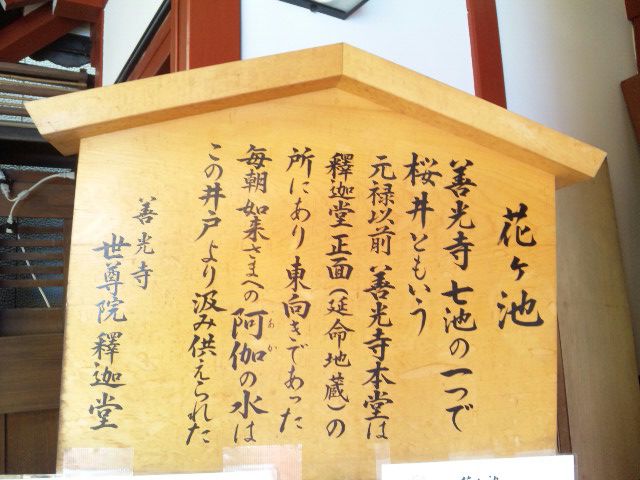 花ヶ池
善光寺 七池の一つで
桜井ともいう
元禄以前 善光寺本堂は
釋迦堂正面(延命地蔵)の
所にあり 東向きであった
毎朝 如来さまへの 阿伽の水は
あか
この井戸 より 汲み供えられた
善光寺
世尊院 釋迦堂